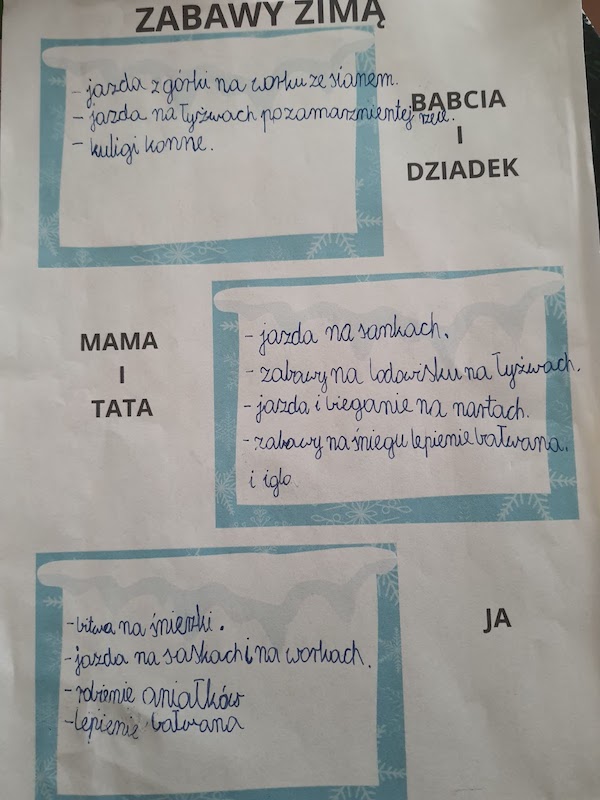 ZABAWY ZIMĄ
- jazda z górki na worku ze sianem.
- jazda na łyżwach po zamarznientej rzece.
- kuligi konne.
BABCIA
I
DZIADEK
MAMA
I
TATA
- jazda na sankach.
- zabawy na lodowisku na łyżwach.
- jazda i bieganie na nartach.
- zabawy na śniegu lepienie bałwana.
i iglo
- bitwa na śnieżki.
- jazda na saskach i na workach.
- robienie aniałków
- lepienie bałwana
JA